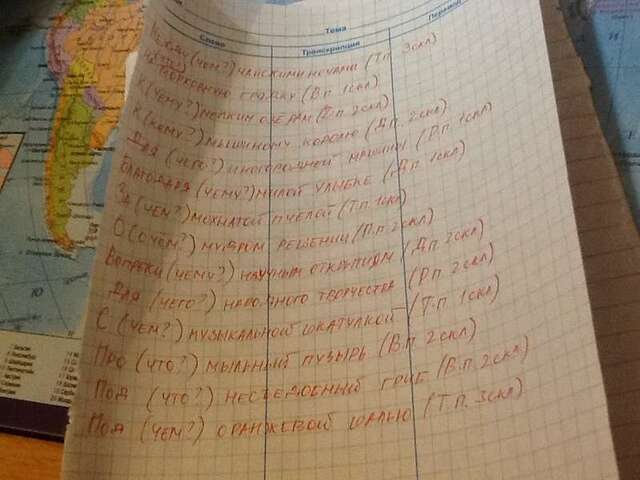 Тема
Слово Транскрипция Перевод
(чем?) майскими ночами (Т.п. 3скл)
морковную грядку (В.п. 1скл)
К (чему?) мелким озёрам (Д.п. 2скл)
К (кому?) мышиному королю (Д.п. 2скл)
Для (чего?) иногородней машины (Р.п. 1скл)
Благодаря (чему?) милой улыбке (Д.п. 1скл)
За (чем?) мохнатой пчелой (Т.п. 1скл)
О (о чём?) мудром решении (П.п. 2скл)
Вопреки (чему?) научным открытиям (Д.п. 2скл)
Для (чего?) народного творчества (Р.п. 2скл)
С (чем?) музыкальной шкатулкой (Т.п. 1скл)
Про (что?) мыльный пузырь (В.п. 2скл)
Под (что?) несъедобный гриб (В.п. 2скл)
Под (чем?) оранжевой шалью (Т.п. 3скл)